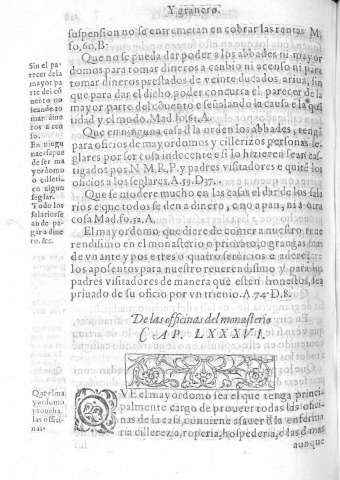 Y granero.
suspension no se entremeran en cobrar las rentas M.
fo, 60, B.
Que no se pueda dar poder a los abbades ni mayor
domos para tomar dineros a canbio ni acenso ni para
tomar dineros prestados de veinte ducados, ariua, sin
que para dar el dicho, poder concursa el parecer de la
mayor parte del cõuento e señalando la causa e la qã
tidad y el modo. Mad. fo, 61. A.
Que en ninguna casa d la orden los abbades, tengã
para oficios de mayordomos y cillerizos personas se
glares por ser cosa indecente o si lo hizieren sean cas
tigados por N. M. R. F. y padres visitadores e quitẽ los
oficios a los seglares. A. 59. D. 37.
Que se modere mucho en las casas el dar de los sala
rios e que estos se den a dinero, e no a pan, ni a otra
cosa Mad. fo. 52. A.
El mayordomo que diere de comer a nuestro re
rendissimo en el monasterio o priorato, o grangas mas
de vn ante y pos tres o quatro seruicios e aderecẽ
los aposentos para nuestro reuerendissimo y para los
padres visitadores de manera que esten honestos, sea
priuado de su oficio por vn trienio. A. 74. D. 8.
Sin el pa
recer de la
mayor pa
rte del cõ
uento no
se an de to
mar dine
ros a cen
so.
En ningu
na casa pue
de ser ma
yordomo
o cilleri-
co algun
seglar.
Todo los
salarios se
an de pa-
gar a dine
ro, &c.
De las officinas del monasterio
CAP. LXXXVI.
Que el ma
yordomo
prouea ha
las offici
nas.
QVE el mayordomo sea el que tenga princi
palmente cargo de proueer todas las ofici
nas de la casa, conuiene a sauer o la enferme
ria cillereza, roperia, hospederia, e las demas
aunque